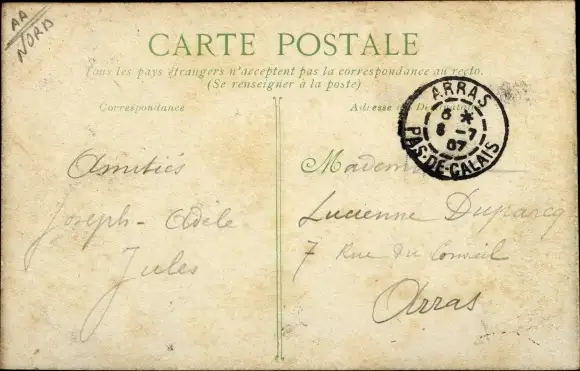 AA
NORD
CARTE POSTALE
Tous les pays étrangers n'acceptent pas la correspondance au recto.
(Se renseigner à la poste)
Correspondance
Adresse du Destinataire
ARRAS
6 *
6 -7
07
PAS-DE-CALAIS
Amitiés
Joseph - Adèle
Jules
Mademoiselle
Lucienne Duparcq
7 Rue du Conseil
Arras